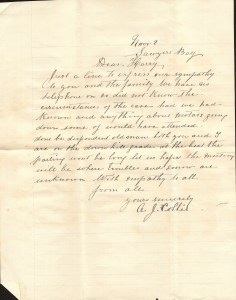 Nov 2
Sawyers Bay
Dear Harry
Just a line to express our sympathy
to you and the family we have no
telephone on so did not know the
circumstances of the case had we had
known and anything about motors going
down some of would have attended
dont be despondent old man both you and I
are on the down hill grade at the best the
parting wont be long let us hope the meeting
will be where troubles and sorrow are
unknown With sympathy to all
from all
yours sincerely
A. J. Collis